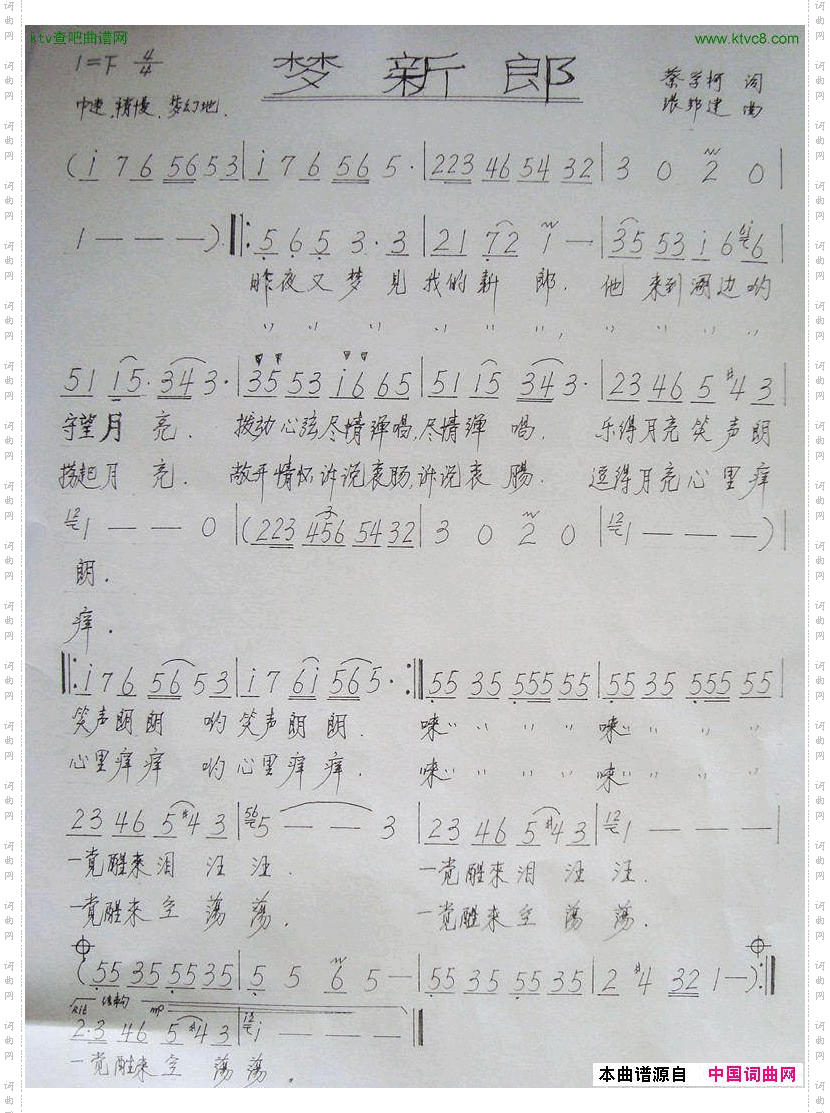 ktv查吧曲谱网
www.ktvc8.com
1=F 4/4
梦新郎
蔡学柯 词
中速、稍慢、梦幻地
邦建 曲
(i 7 6 5 6 5 3 | i 7 6 5 6 5 · | 2 2 3 4 6 5 4 3 2 | 3 0 2 0 |
1 — — — ) ‖: 5 6 5 3 · 3 | 2 1 7 2 1 — | 3 5 5 3 i 6 6
昨夜又梦见我的新郎. 他来到湖边哟
〃 〃 〃 〃 〃 〃 〃, 〃 〃 〃 〃 〃
5 1 1 5 · 3 4 3 · | 3 5 5 3 i 6 6 5 | 5 1 1 5 3 4 3 · | 2 3 4 6 5 #4 3
守望月亮. 拨动心弦尽情弹唱,尽情弹唱. 乐得月亮笑声朗
捞起月亮. 敞开情怀诉说衷肠,诉说衷肠. 逗得月亮心里痒
1 — — 0 | (2 2 3 4 5 6 5 4 3 2 | 3 0 2 0 | 1 — — — ) |
朗.
痒.
‖: i 7 6 5 6 5 3 | i 7 6 i 5 6 5 · :‖ 5 5 3 5 5 5 5 5 5 | 5 5 3 5 5 5 5 5 5
笑声朗朗 哟笑声朗朗. 唻〃 〃 〃 〃 〃 唻〃 〃 〃 〃
心里痒痒 哟心里痒痒. 唻〃 〃 〃 〃 〃 唻〃 〃 〃 〃
2 3 4 6 5 #4 3 | 5 — — 3 | 2 3 4 6 5 #4 3 | 1 — — — |
一觉醒来泪汪汪. 一觉醒来泪汪汪.
一觉醒来空荡荡. 一觉醒来空荡荡.
(5 5 3 5 5 5 3 5 | 5 5 6 5 — | 5 5 3 5 5 5 3 5 | 2 #4 3 2 1 — ) :‖
Rit 结束句 mp
2 · 3 4 6 5 #4 3 | i — — — ‖
一觉醒来空荡荡.
本曲谱源自 中国词曲网
词曲网